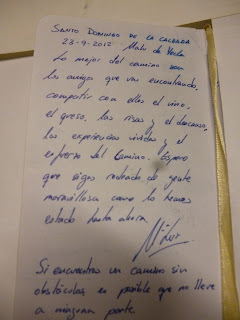 SANTO DOMINGO DE LA CALZADA
23-9-2012
Lo mejor del camino son
los amigos que vas encontrando,
compartir con ellos el vino,
el queso, las risas y el descanso,
las experiencias vividas y el
esfuerzo del Camino. Espero
que sigas rodeado de gente
maravillosa como lo hemos
estado hasta ahora
Si encuentras un camino sin
obstáculos es posible que no lleve
a ninguna parte